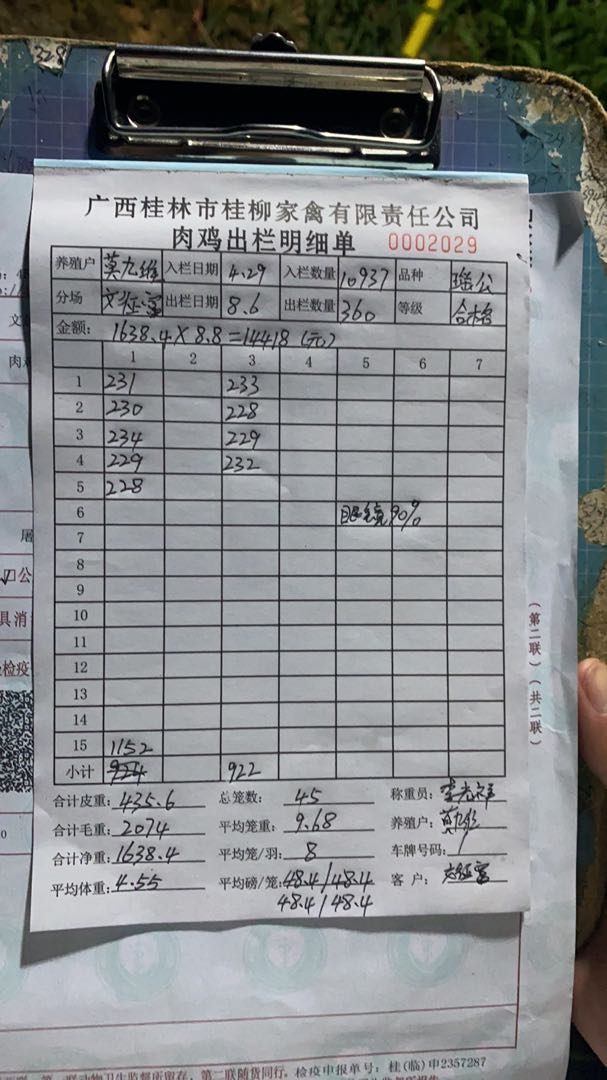 广西桂林市桂柳家禽有限责任公司
肉鸡出栏明细单 0002029
养殖户 莫九维 入栏日期 4.29 入栏数量 10937 品种 瑶公
分场 出栏日期 8.6 出栏数量 360 等级 合格
金额: 1638.4×8.8=14418 (元)
1 2 3 4 5 6 7
1 231 233
2 230 228
3 234 229
4 229 232
5 228
6 眼镜90%
7
8
9
10
11
12
13
14
15 1152
小计 924 922
合计皮重: 435.6 总笼数: 45 称重员:
合计毛重: 2074 平均笼重: 9.68 养殖户:
合计净重: 1638.4 平均笼/羽: 8 车牌号码:
平均体重: 4.55 平均磅/笼: 48.4/48.4 客户:
48.4/48.4
(第二联)(共二联)
第二联随货同行。检疫申报单号: 桂(临)申2357287